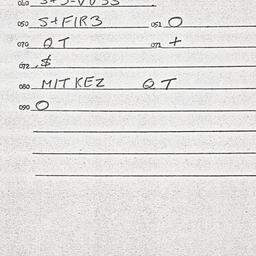 050 S+FIR3 051 O
070 QT 071 +
072 .$
080 MITKEZ QT
090 O